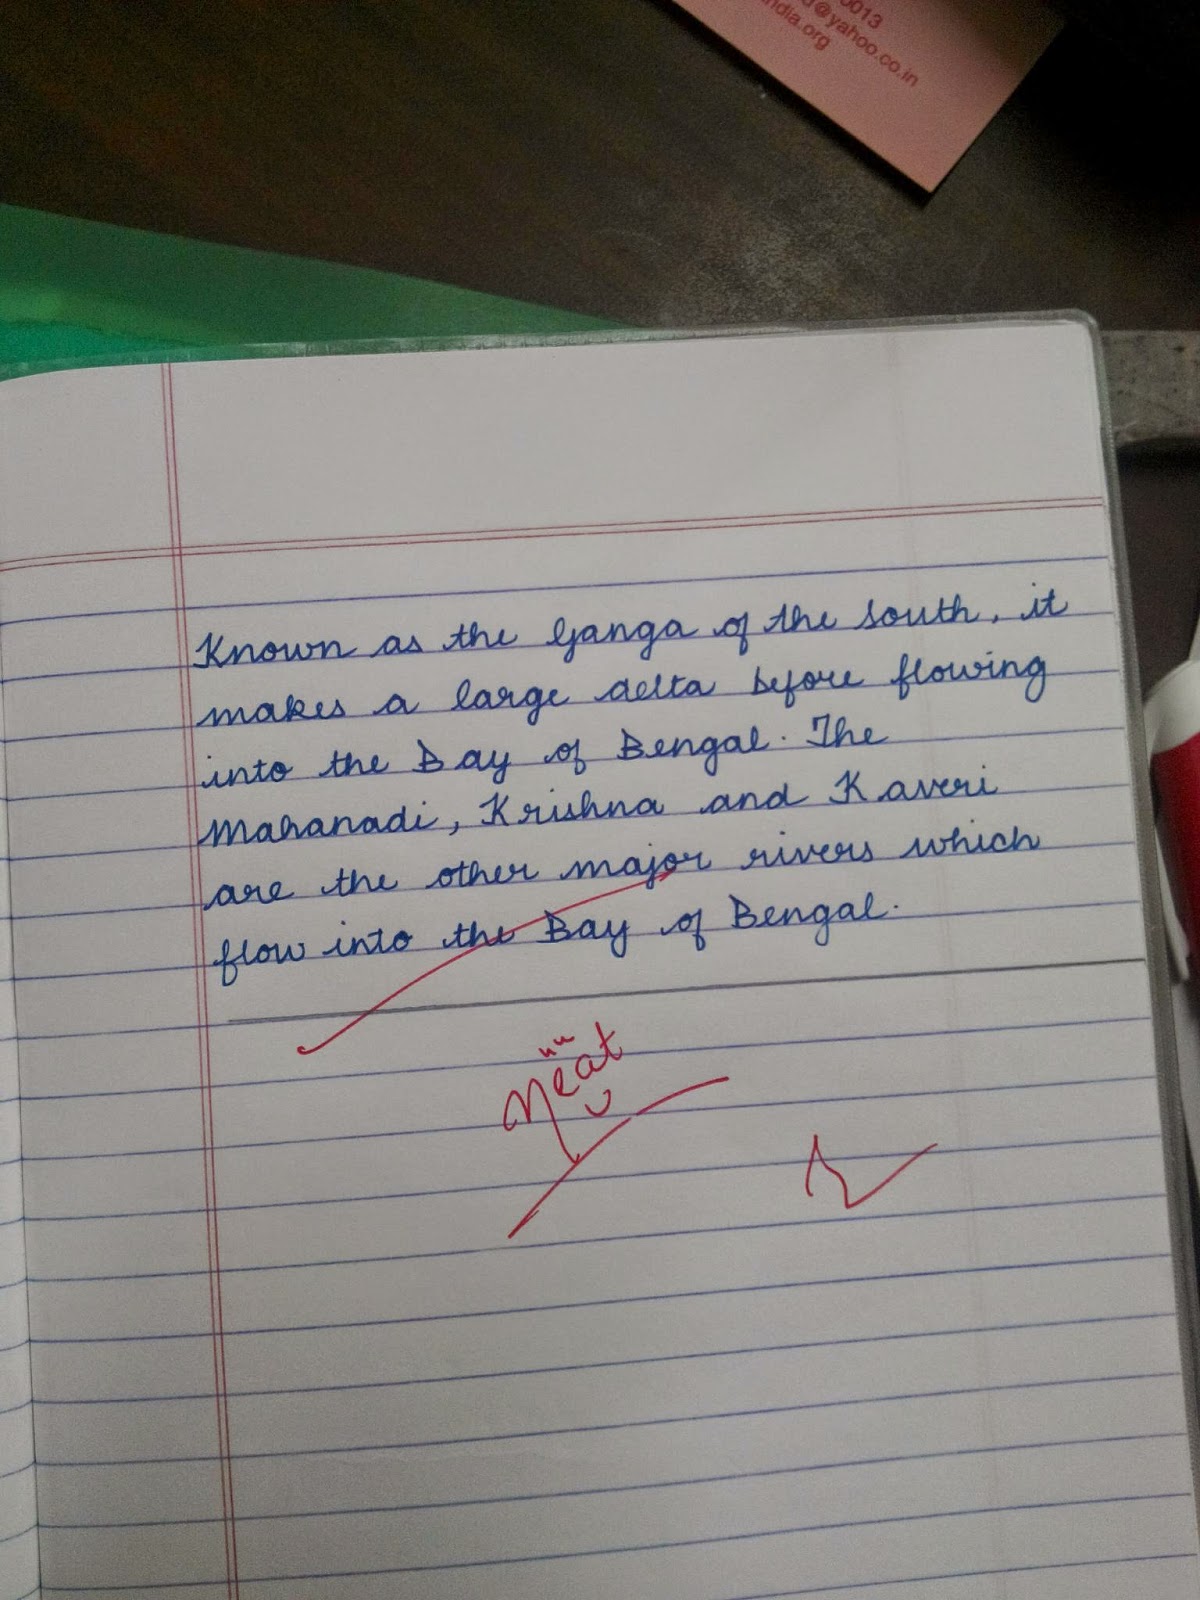 0013
d@yahoo.co.in
india.org
Known as the Ganga of the south, it
makes a large delta before flowing
into the Bay of Bengal. The
Mahanadi, Krishna and Kaveri
are the other major rivers which
flow into the Bay of Bengal.
Neat